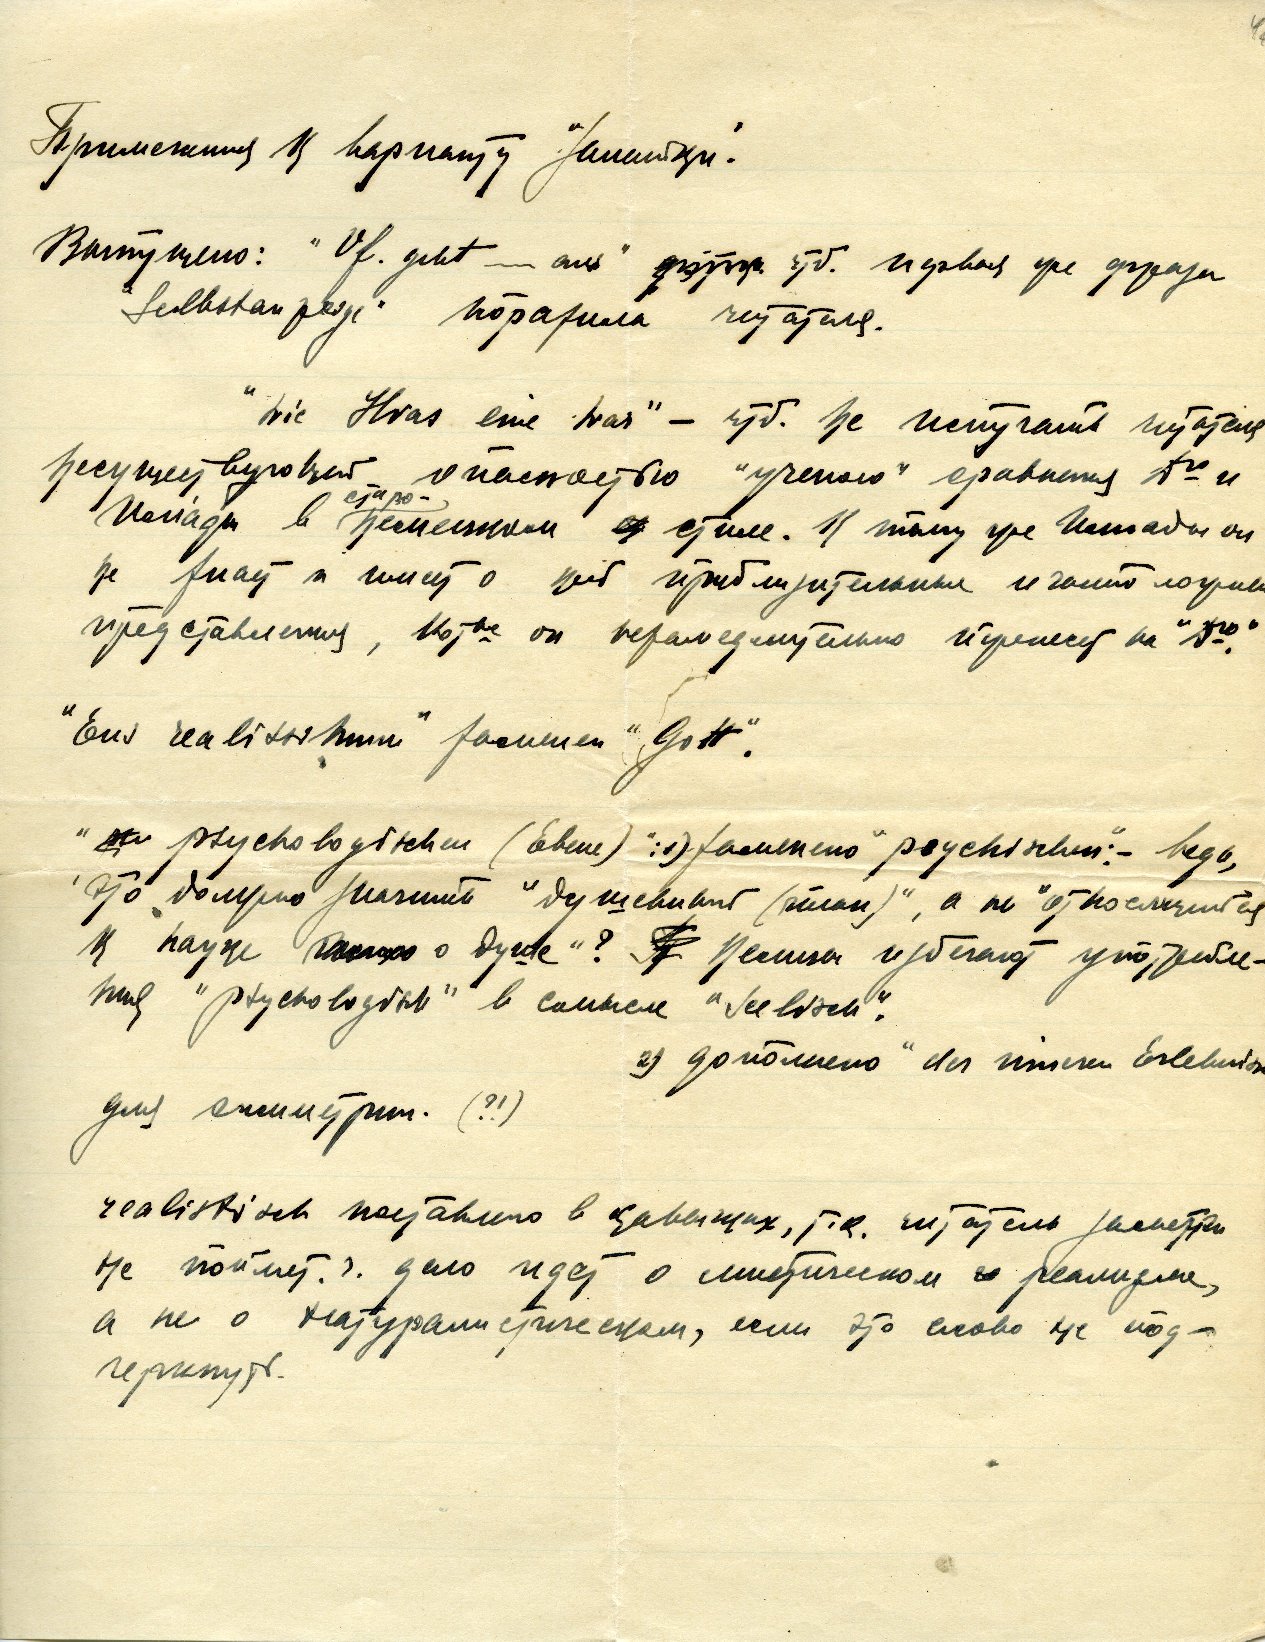 Примечания к варианту "Заметки".
Выпущено: "Vf. geht — aus" чтб. первая же фраза
"Selbstanzeige" поразила читателя.
"wie Ilias eine war" — чтб. не испугать читателя
несуществующей опасностью "ученого" сравнения Дго и
Илиады в старо-
немецком стиле. К тому же Илиады он
не знает и имеет о ней приблизительные и часто ложные
представления, котые он незамедлительно перенесет на "Дго."
"Ens realissimum" заменен "Gott".
"psychologischen (Ebene)": 1) заменено "psychischen". — ведь,
это должно значить "душевный (план)", а не "относящийся
к науке о душе"? Немцы избегают употребле-
ния "psychologisch" в смысле "seelisch".
2) дополнено "des inneren Erlebnisses
для симметрии. (?!)
realistisch поставлено в кавычках, т.к. читатель заметки
не поймет, ч. дело идет о мистическом реализме,
а не о натуралистическом, если это слово не под-
черкнуть.